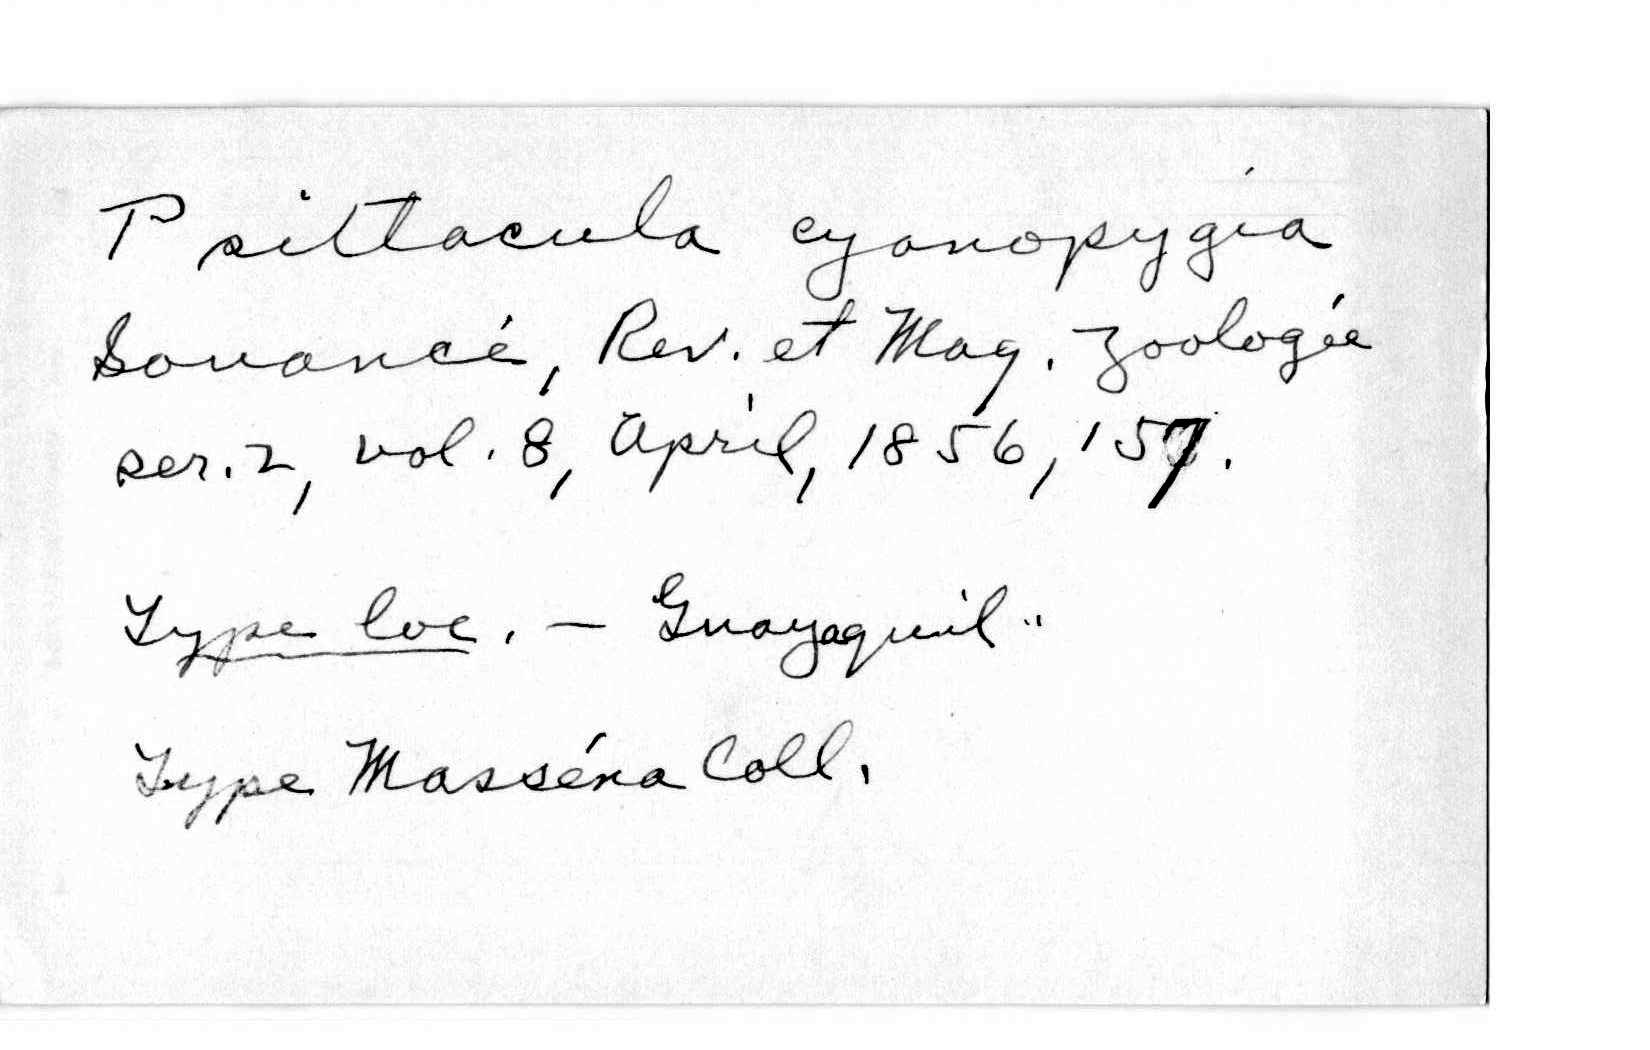 Psittacula cyanopygia
Souancé, Rev. et Mag. Zoologie
ser. 2, vol. 8, April, 1856, 157.
Type loc. - Guayaquil"
Type Masséna Coll.